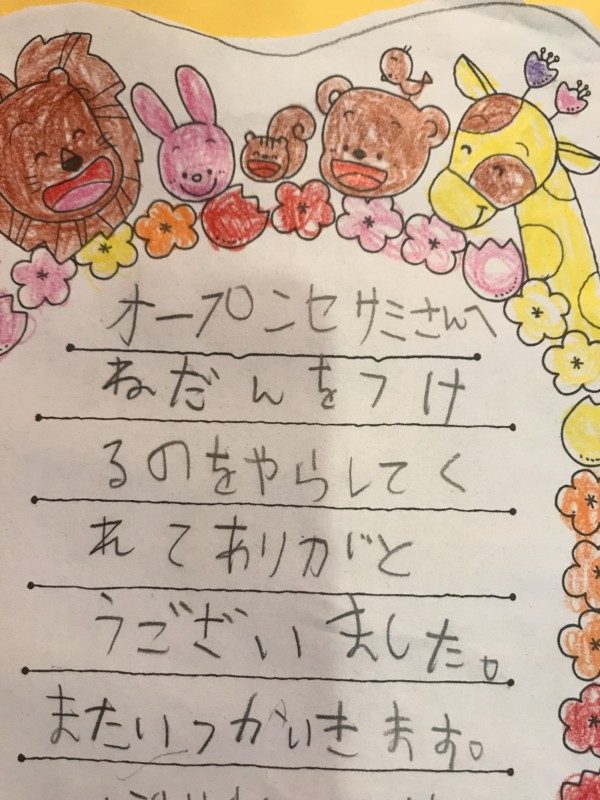 オープンセサミさんへ
ねだんをつけ
るのをやらしてく
れてありがと
うございました。
またいつかいきます。